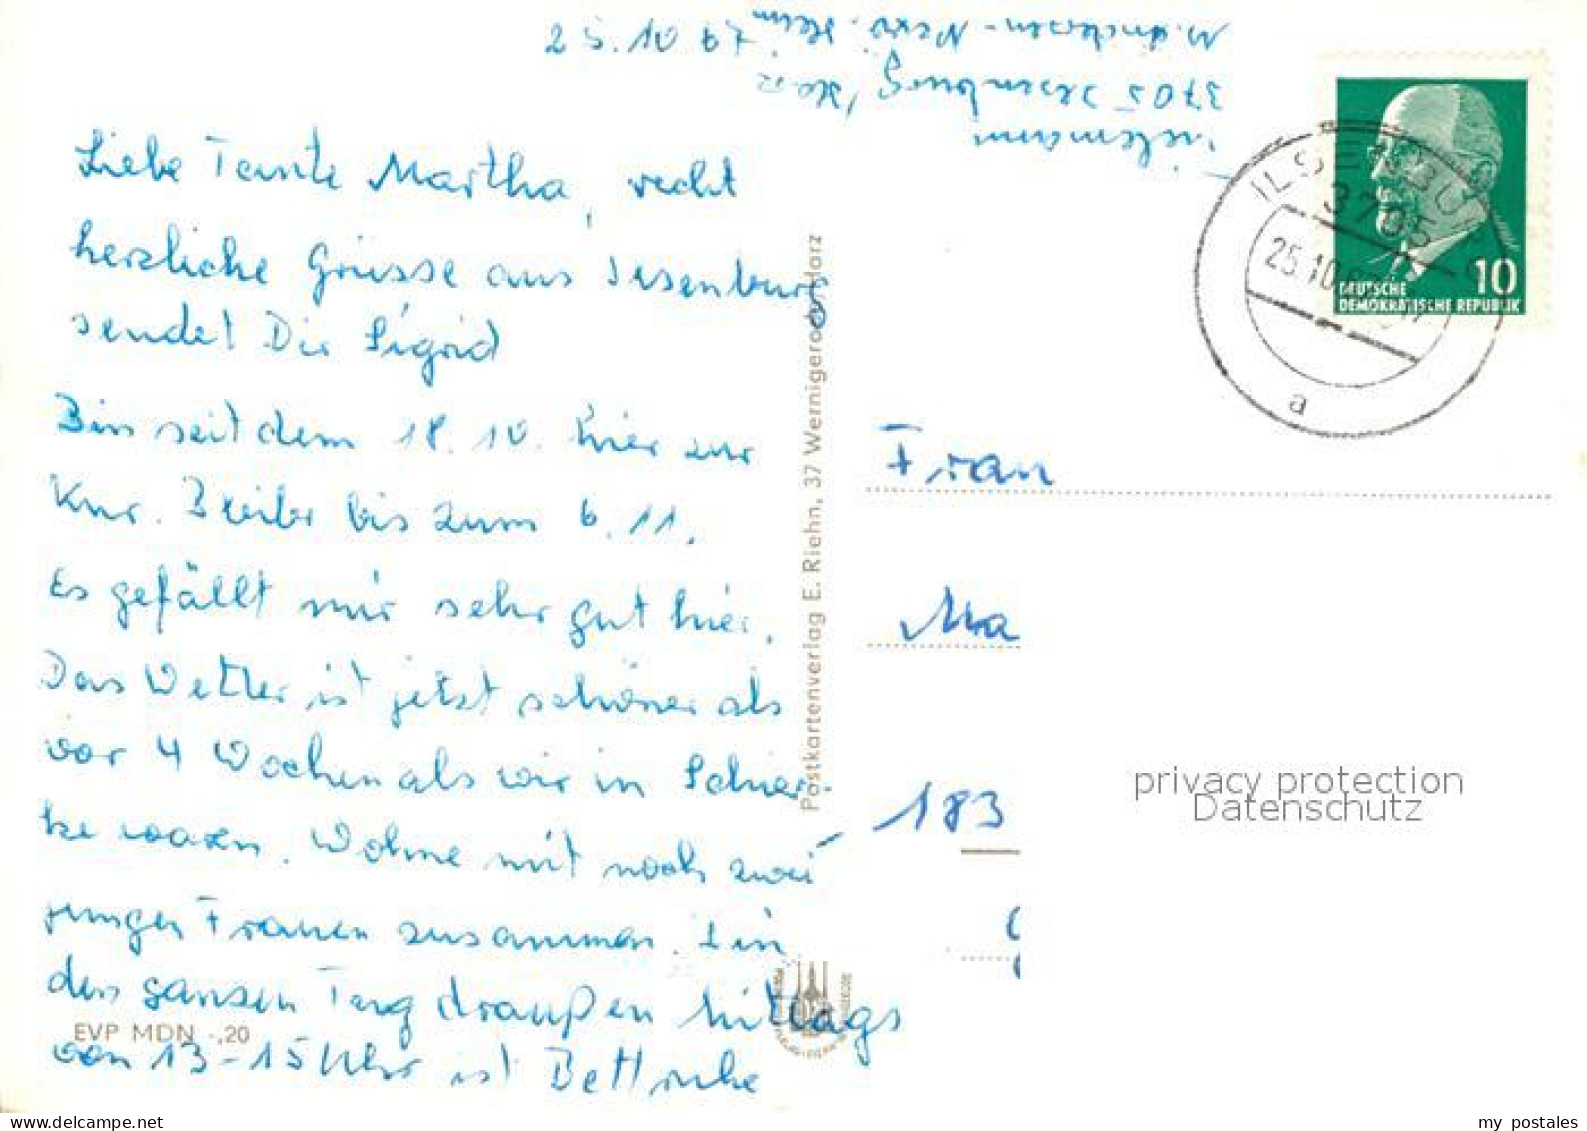 25.10.67
Tielemann
3705 Ilsenburg/Harz
M. Andersen-Nexö-Heim
Liebe Tante Martha, recht
herzliche Grüsse aus Ilsenburg
sendet Dir Sigrid
Bin seit dem 18.10. hier zur
Kur. Bleibe bis zum 6.11.
Es gefällt mir sehr gut hier.
Das Wetter ist jetzt schöner als
vor 4 Wochen als wir in Schier-
ke waren. Wohne mit noch zwei
jungen Frauen zusammen. Bin
den ganzen Tag draußen mittags
von 13-15 Uhr ist Bettruhe
EVP MDN -,20
Postkartenverlag E. Riehn, 37 Wernigerode/Harz
ILSENBURG
3705
25.10.67
a
10
DEUTSCHE
DEMOKRATISCHE REPUBLIK
Frau
Ma
183
privacy protection
Datenschutz
my postales